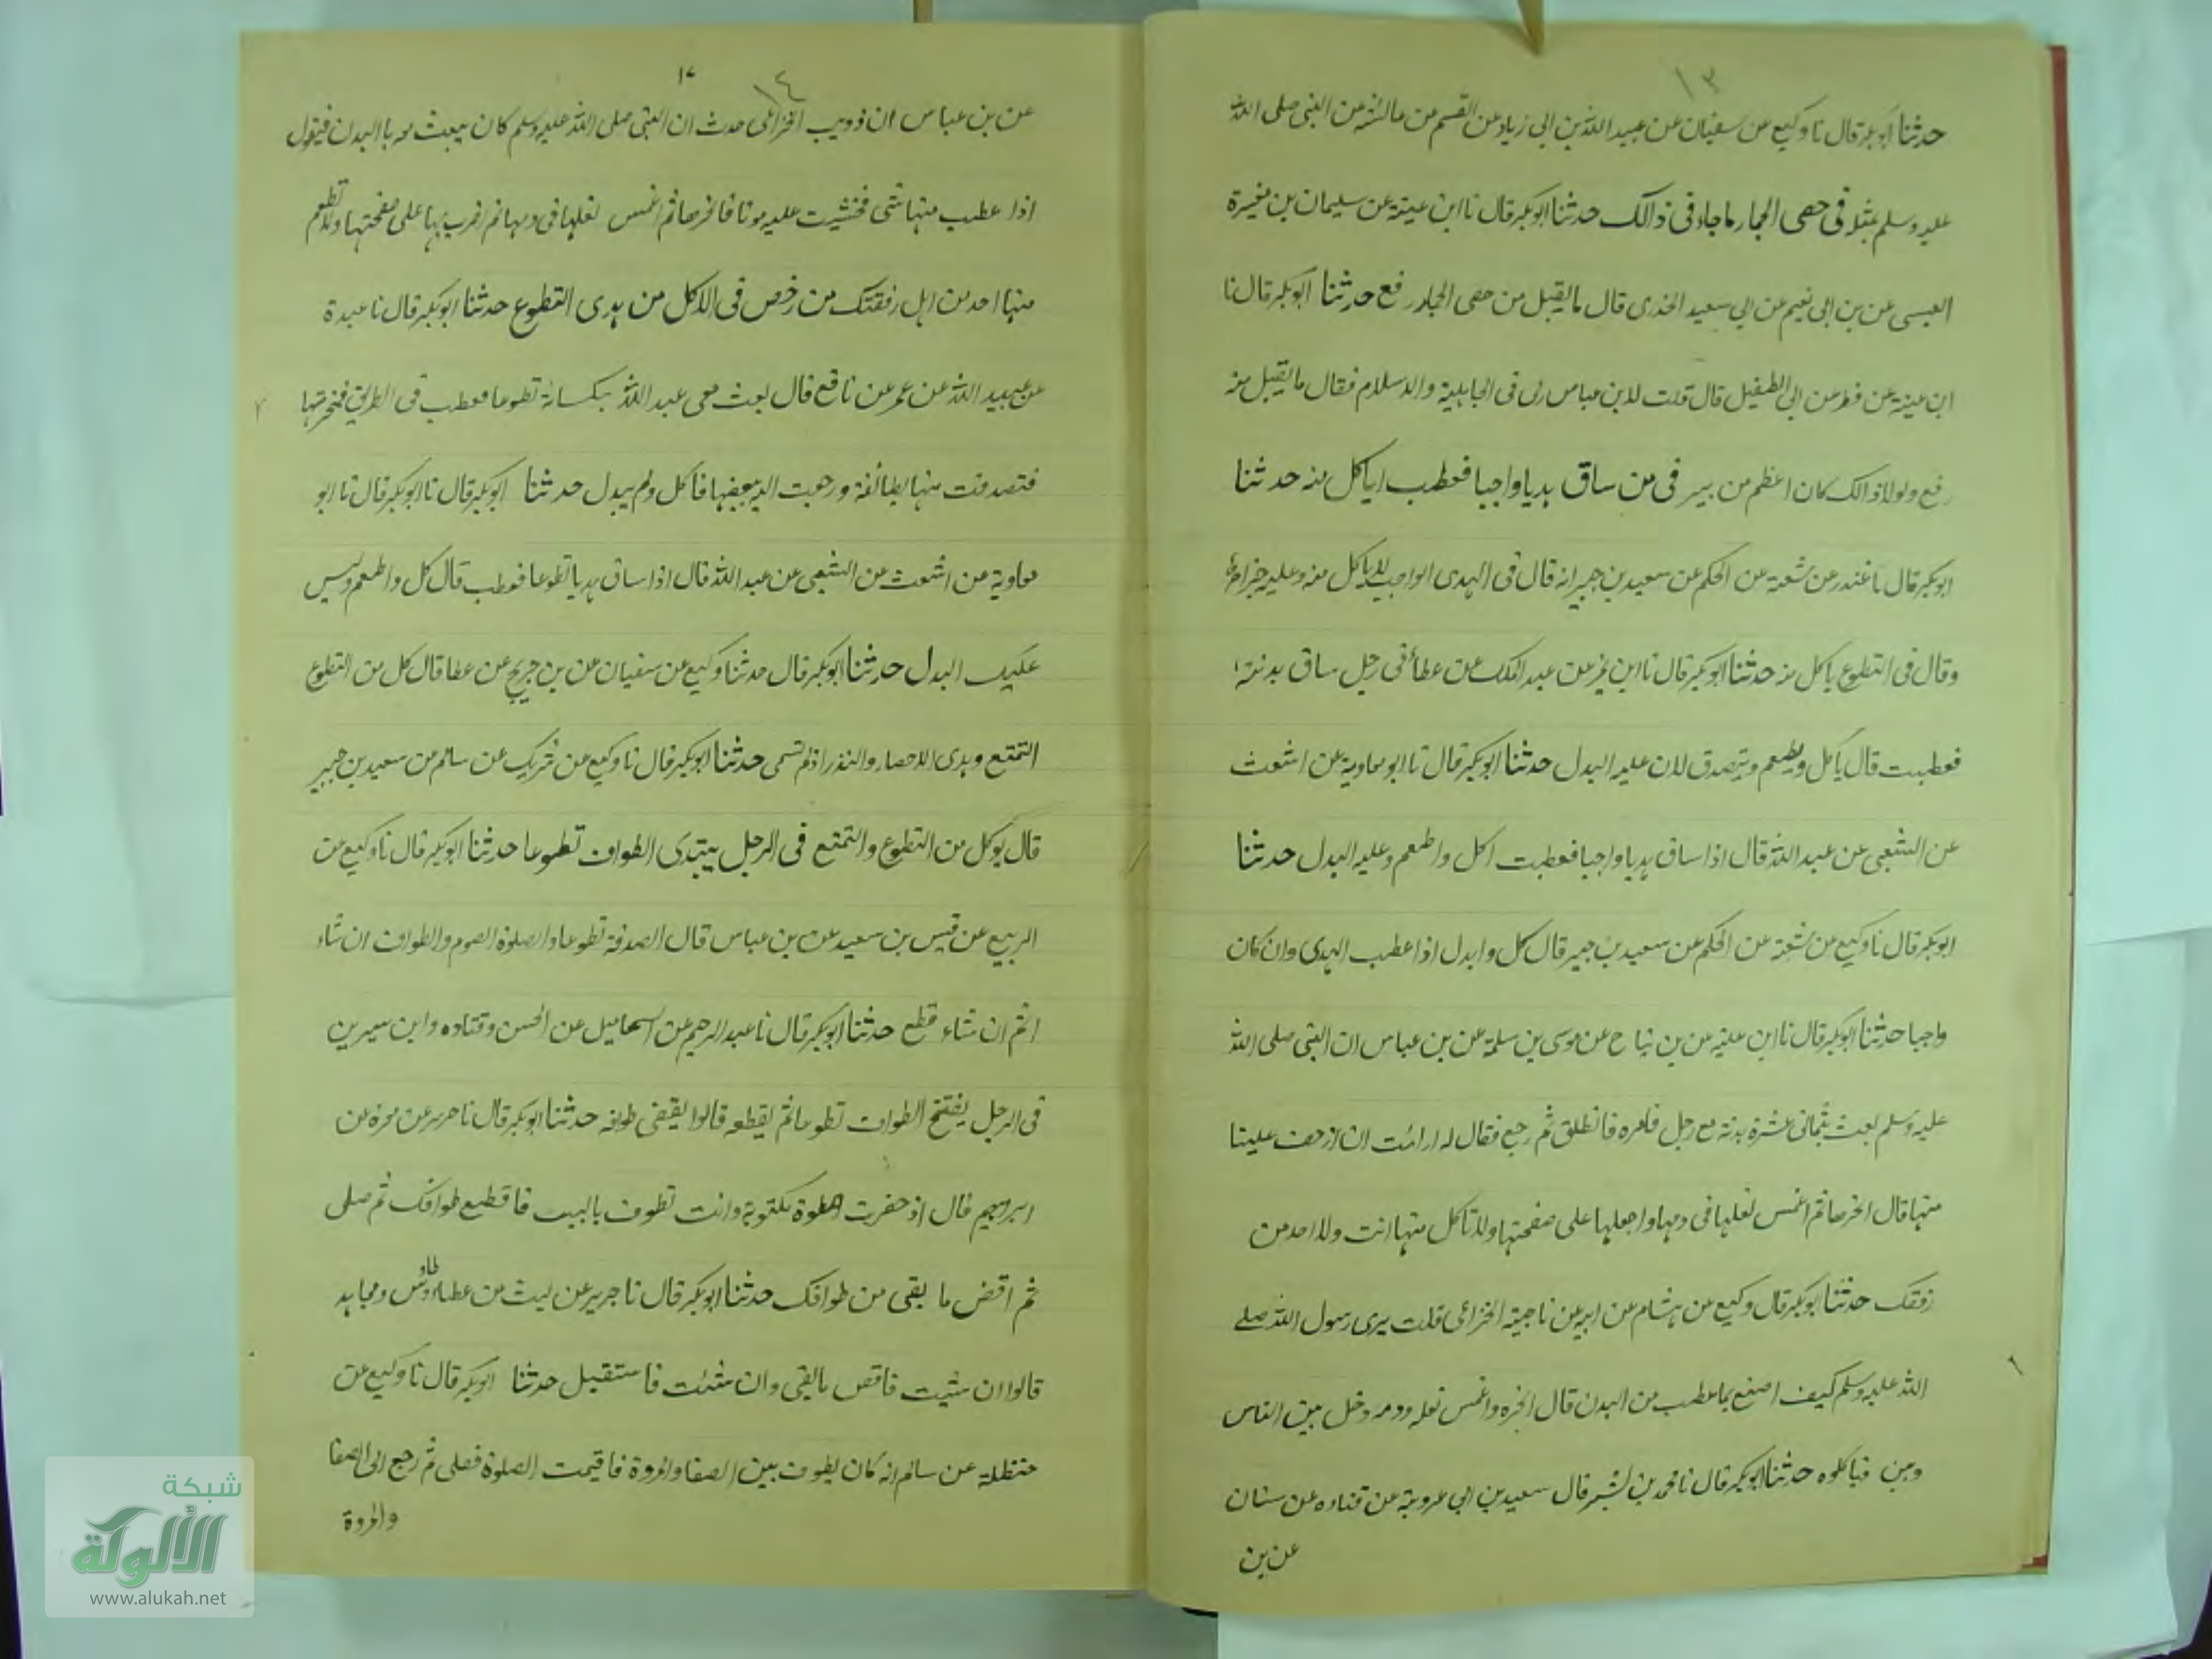 ١٣
حدثنا ابوبكر قال نا وكيع عن سفيان عن عبيد الله بن ابى زياد عن القسم عن عائشه عن النبى صلى الله
عليه وسلم بمثله فى حصى الجمار ماجاء فى ذالك حدثنا ابوبكر قال نا ابن عينة عن سليمان بن مغيرة
العبسى عن بن ابى نعيم عن ابى سعيد الخدرى قال مايقبل من حصى الجمار رفع حدثنا ابوبكر قال نا
ابن عينة عن فطر عن ابى الطفيل قال قلت لابن عباس رمى فى الجاهلية والاسلام فقال مايقبل منه
رفع ولولا ذالك كان اعظم من بير فى من ساق هديا واجبا فعطب اياكل منه حدثنا
ابوبكر قال نا غندر عن شعبة عن الحكم عن سعيد بن جبير انه قال فى الهدى الواجب لاياكل منه وعليه جزاءه
وقال فى التطوع ياكل منه حدثنا ابوبكر قال نا ابن نمير عن عبد الملك عن عطأ فى رجل ساق بدنة
فعطبت قال ياكل ويطعم ويتصدق لان عليه البدل حدثنا ابوبكر قال نا ابو معاوية عن اشعث
عن الشعبى عن عبد الله قال اذا ساق هديا واجبا فعطبت اكل واطعم وعليه البدل حدثنا
ابوبكر قال نا وكيع عن شعبة عن الحكم عن سعيد بن جبير قال كل وابدل اذا عطب الهدى وان كان
واجبا حدثنا ابوبكر قال نا ابن علية عن بن تياح عن موسى بن سلمة عن بن عباس ان النبى صلى الله
عليه وسلم بعث بثمانى عشرة بدنة مع رجل فامره فانطلق ثم رجع فقال له ارائت ان ازحف علينا
منها قال انحرها ثم اغمس نعلها فى دمها واجعلها على صفحتها ولا تاكل منها انت ولا احد من
رفقك حدثنا ابوبكر قال وكيع عن هشام عن ابيه عن ناجية الخزاعى قلت يرى رسول الله صلى
الله عليه وسلم كيف اصنع بما عطب من البدن قال انحره واغمس نعله دمه وخل بين الناس
وبين فياكلوه حدثنا ابوبكر قال نا محمد بن بشير قال سعيد بن ابى عروبة عن قتاده عن سنان
عن بن
١٤
عن بن عباس ان ذويب الخزاعى حدث ان النبى صلى الله عليه وسلم كان يبعث معه با البدن فيقول
اذا عطب منها شى فخشيت عليه موتا فانحرها ثم اغمس نعلها فى دمها ثم اضرب بها على صفحتها ولا تطعم
منها احد من اهل رفقتك من رخص فى الاكل من هدى التطوع حدثنا ابوبكر قال نا عبدة
عن عبيد الله عن عمر عن نافع قال بعث معى عبد الله بكسانة تطوعا فعطب فى الطريق فنحرتها
فتصدقت منها بطائفة ورجعت اليه ببعضها فاكل ولم يبدل حدثنا ابوبكر قال نا ابوبكر قال نا ابو
معاوية عن اشعث عن الشعبى عن عبد الله قال اذا ساق هديا تطوعا فعطب قال كل واطعم وليس
عليك البدل حدثنا ابوبكر قال حدثنا وكيع عن سفيان عن بن جريج عن عطا قال كل من التطوع
التمتع وهدى الاحصار والنذر اذ لم تسمى حدثنا ابوبكر قال نا وكيع عن شريك عن سالم عن سعيد بن جبير
قال يوكل من التطوع والتمتع فى الرجل يبتدى الطواف تطوعا حدثنا ابوبكر قال نا وكيع عن
الربيع عن قيس بن سعيد عن بن عباس قال الصدقة تطوعا والصلوة الصوم والطواف ان شاء
اتم ان شاء قطع حدثنا ابوبكر قال نا عبد الرحيم عن اسماعيل عن الحسن وقتاده وابن سيرين
فى الرجل يفتتح الطواف تطوعا ثم يقطعه قالوا يقضى طوفه حدثنا ابوبكر قال نا جرير عن مغيره عن
ابراهيم قال اذ حضرت الصلوة مكتوبة وانت تطوف بالبيت فاقطع طوافك ثم صلى
ثم اقض ما بقى من طوافك حدثنا ابوبكر قال نا جرير عن ليث عن عطاء طاوس ومجاهد
قالوا ان شيت فاقض مابقى وان شئت فاستقبل حدثنا ابوبكر قال نا وكيع عن
حنظلة عن سالم انه كان يطوف بين الصفا والمروة فاقيمت الصلوة فصلى ثم رجع الى الصفا
والمروة
شبكة
الألوكة
www.alukah.net